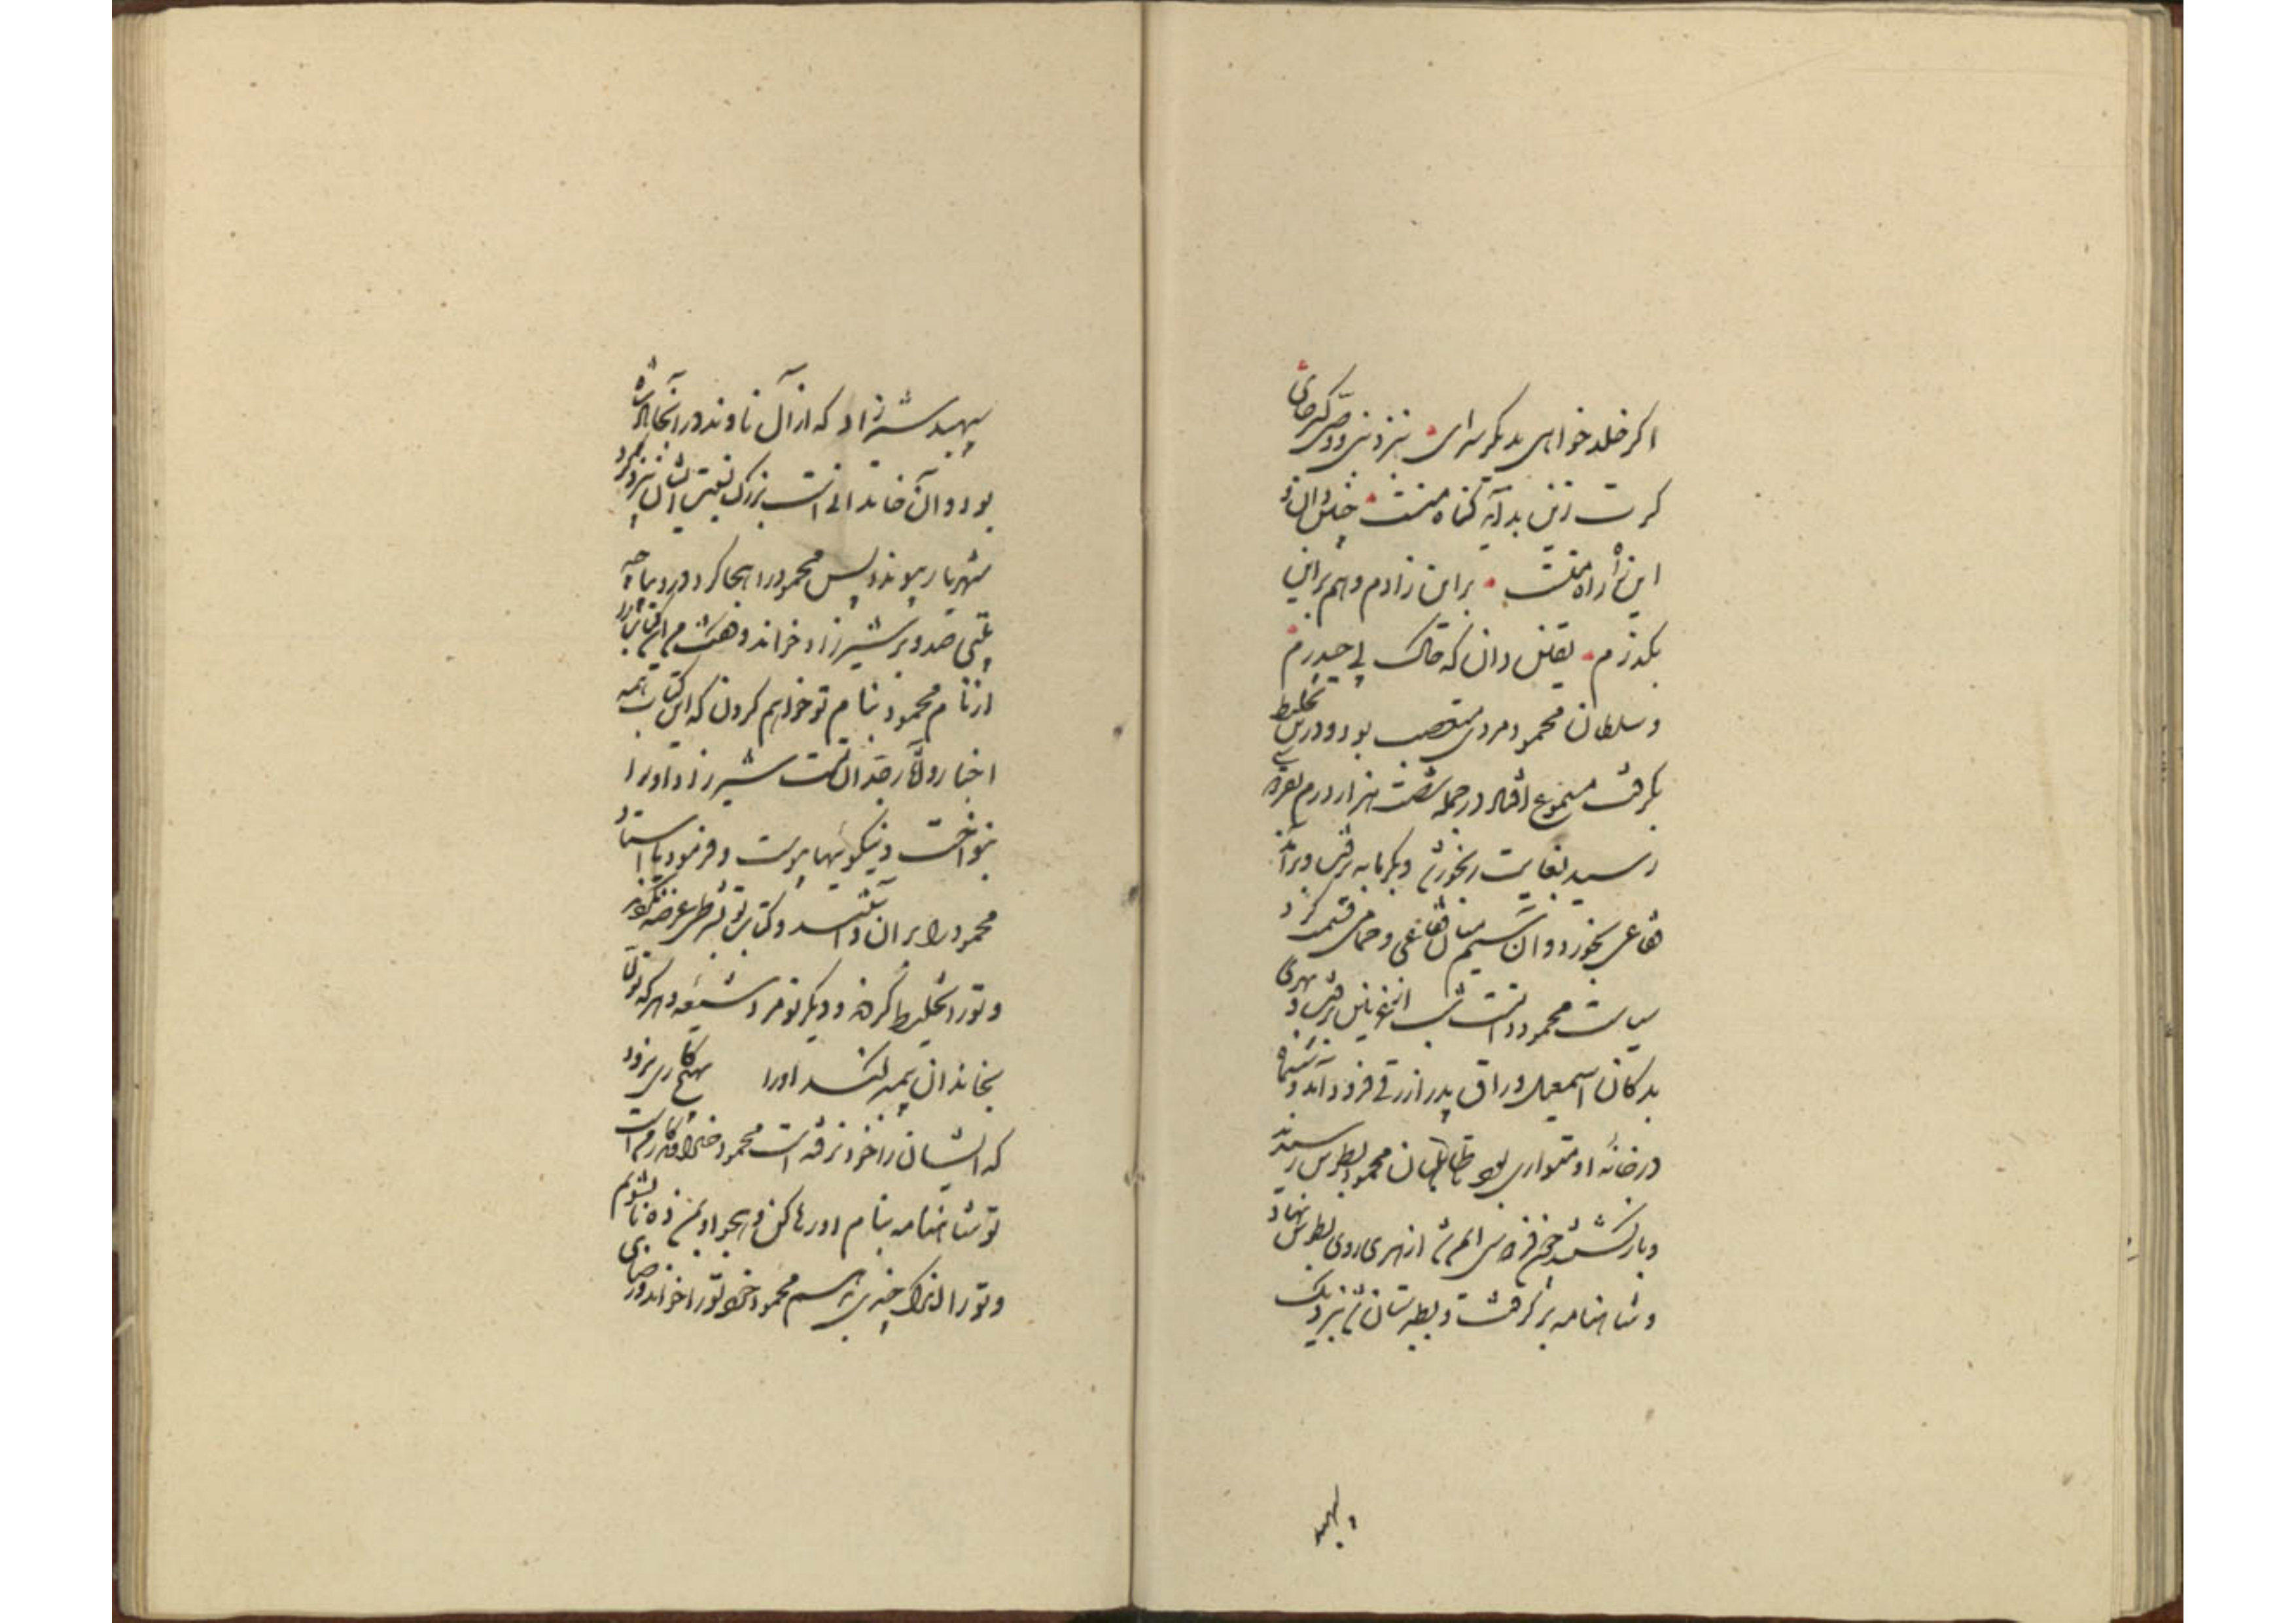 اکر خلد خواهی بدیکر سرای نزد نبی و وصی کیر جای
کرت زین بد آید کناه منست چنین دان و
این راه راه منست براین زادم و هم براین
بکذرم یقین دان که خاک پی حیدرم
و سلطان محمود مردی متعصب بود و درین تخلیط
بکرفت مسموع افتاد در جمله شصت هزار درم نقره
رسید بغایت رنجور شد و بکرمابه رفت و برآمد
فقاعی بخورد و آن سیم میان فقاعی و حمامی قسمت کرد
سیاست محمود دانست شب از غزنین برفت و بهری
بدکان اسمعیل وراق پدر ازرقی فرود آمد و ششماه
در خانه او متواری بود تا طالبان محمود بطوس رسیدند
و بازکشتند چون فردوسی ایمن شد از هری روی بطوس نهاد
و شاهنامه برکرفت و بطبرستان شد نزدیک
سپهبد
سپهبد شیرزاد که از آل ناوند در آنجا پادشاه
بود و آن خاندانی است بزرک نسبت ایشان بیزدکرد
شهریار پیوندد پس محمود را هجا کرد در دیباجه
بیتی صد و بر شیرزاد خواند و کفت من این کتاب را
از نام محمود بنام تو خواهم کردن که این کتاب همه
اخبار و آثار جدان تست شیرزاد او را
بنواخت و نیکویها پیوست و فرمود یا استاد
محمود را بران داشتند و کتاب تو بشرطی عرضه نکردند
و تو را تخلیط کردند و دیکر تو مرد شیعه و هرکه تولی
بخاندان پیمبر کند او را هیچ کاری نرود
که ایشان را خود نرفته است محمود خداوندکار من است
تو شاهنامه بنام او رها کن و هجو او بمن ده تا بشویم
و تو را اندک چیزی بدهم محمود خود تو را خواند و رضای